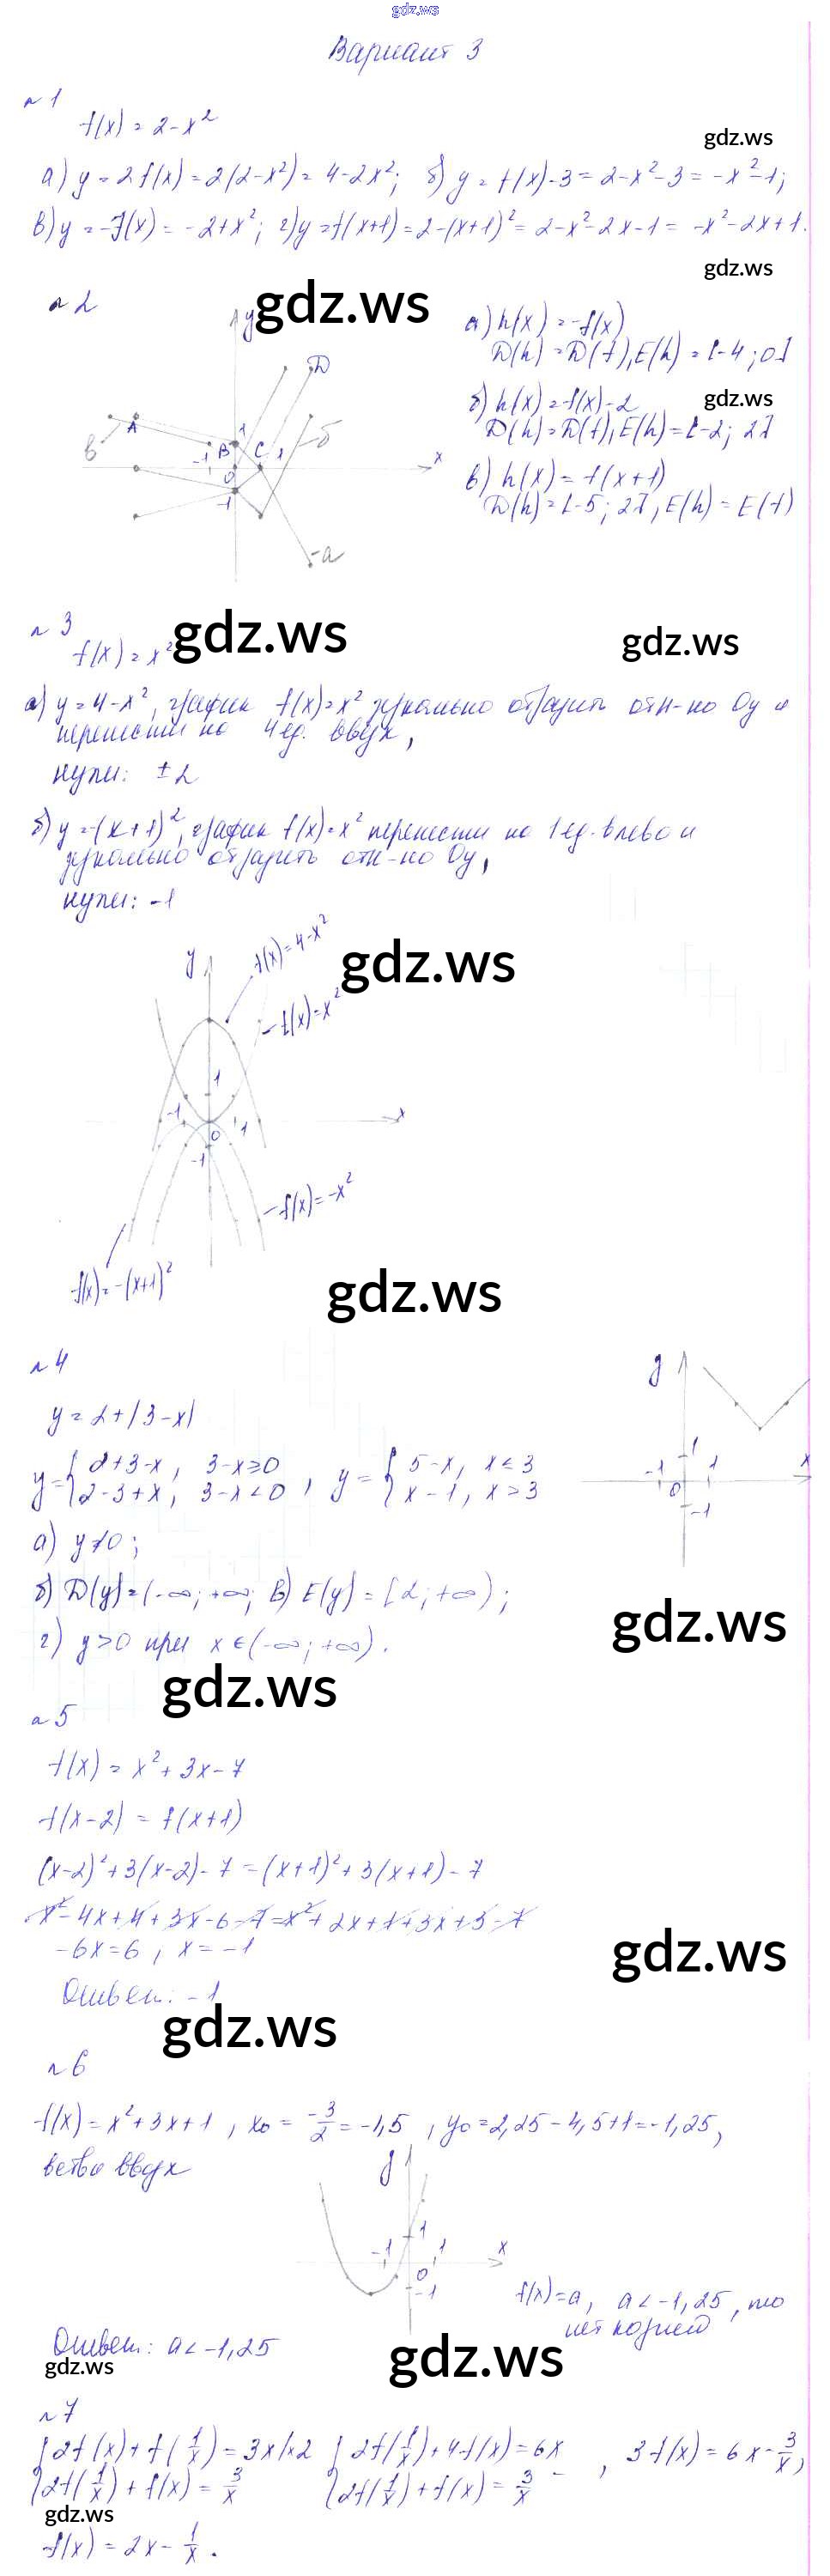 gdz.ws
Вариант 3
n 1
f(x) = 2 - x²
gdz.ws
а) y = 2f(x) = 2(2-x²) = 4-2x²; б) y = f(x)-3 = 2-x²-3 = -x²-1;
в) y = -f(x) = -2+x²; г) y = f(x+1) = 2-(x+1)² = 2-x²-2x-1 = -x²-2x+1.
gdz.ws
n 2
y gdz.ws
а) h(x) = -f(x)
D(h) = D(f), E(h) = [-4; 0]
D
б) h(x) = f(x)-2
gdz.ws
D(h) = D(f), E(h) = [-2; 2]
в A -1 B 1 C 1 -б
0 x
-1
-а
в) h(x) = f(x+1)
D(h) = [-5; 2], E(h) = E(f)
n 3 gdz.ws
gdz.ws
f(x) = x²
а) y = 4-x², график f(x)=x² зеркально отразить отн-но Oy и
перенести на 4 ед. вверх,
нули: ±2
б) y = -(x+1)², график f(x)=x² перенести на 1 ед. влево и
зеркально отразить отн-но Oy,
нули: -1
y f(x)=4-x² gdz.ws
-f(x)=x²
1
-1 0 1 x
-1
-f(x)=-x²
f(x)=-(x+1)²
gdz.ws
n 4
y = 2+|3-x|
y = { 2+3-x, 3-x≥0
2-3+x, 3-x<0 , y = { 5-x, x≤3
x-1, x>3
y
1
-1 0 1 x
-1
а) y≠0;
б) D(y)=(-∞; +∞; В) E(y)=[2; +∞);
г) y>0 при x∈(-∞; +∞).
gdz.ws
gdz.ws
n 5
f(x) = x²+3x-7
f(x-2) = f(x+1)
(x-2)²+3(x-2)-7 = (x+1)²+3(x+1)-7
x²-4x+4+3x-6-7=x²+2x+1+3x+3-7
-6x=6, x=-1
gdz.ws
Ответ: -1
gdz.ws
n 6
f(x)=x²+3x+1, x₀ = -3/2 = -1,5, y₀=2,25-4,5+1=-1,25,
ветви вверх
y
1
-1 0 1 x
-1
f(x)=a, a<-1,25, то
нет корней
Ответ: a<-1,25
gdz.ws
gdz.ws
n 7
{ 2f(x)+f(1/x)=3x|×2
2f(1/x)+f(x)=3/x
{ 2f(1/x)+4f(x)=6x
2f(1/x)+f(x)=3/x - , 3f(x)=6x-3/x,
gdz.ws
f(x)=2x-1/x.